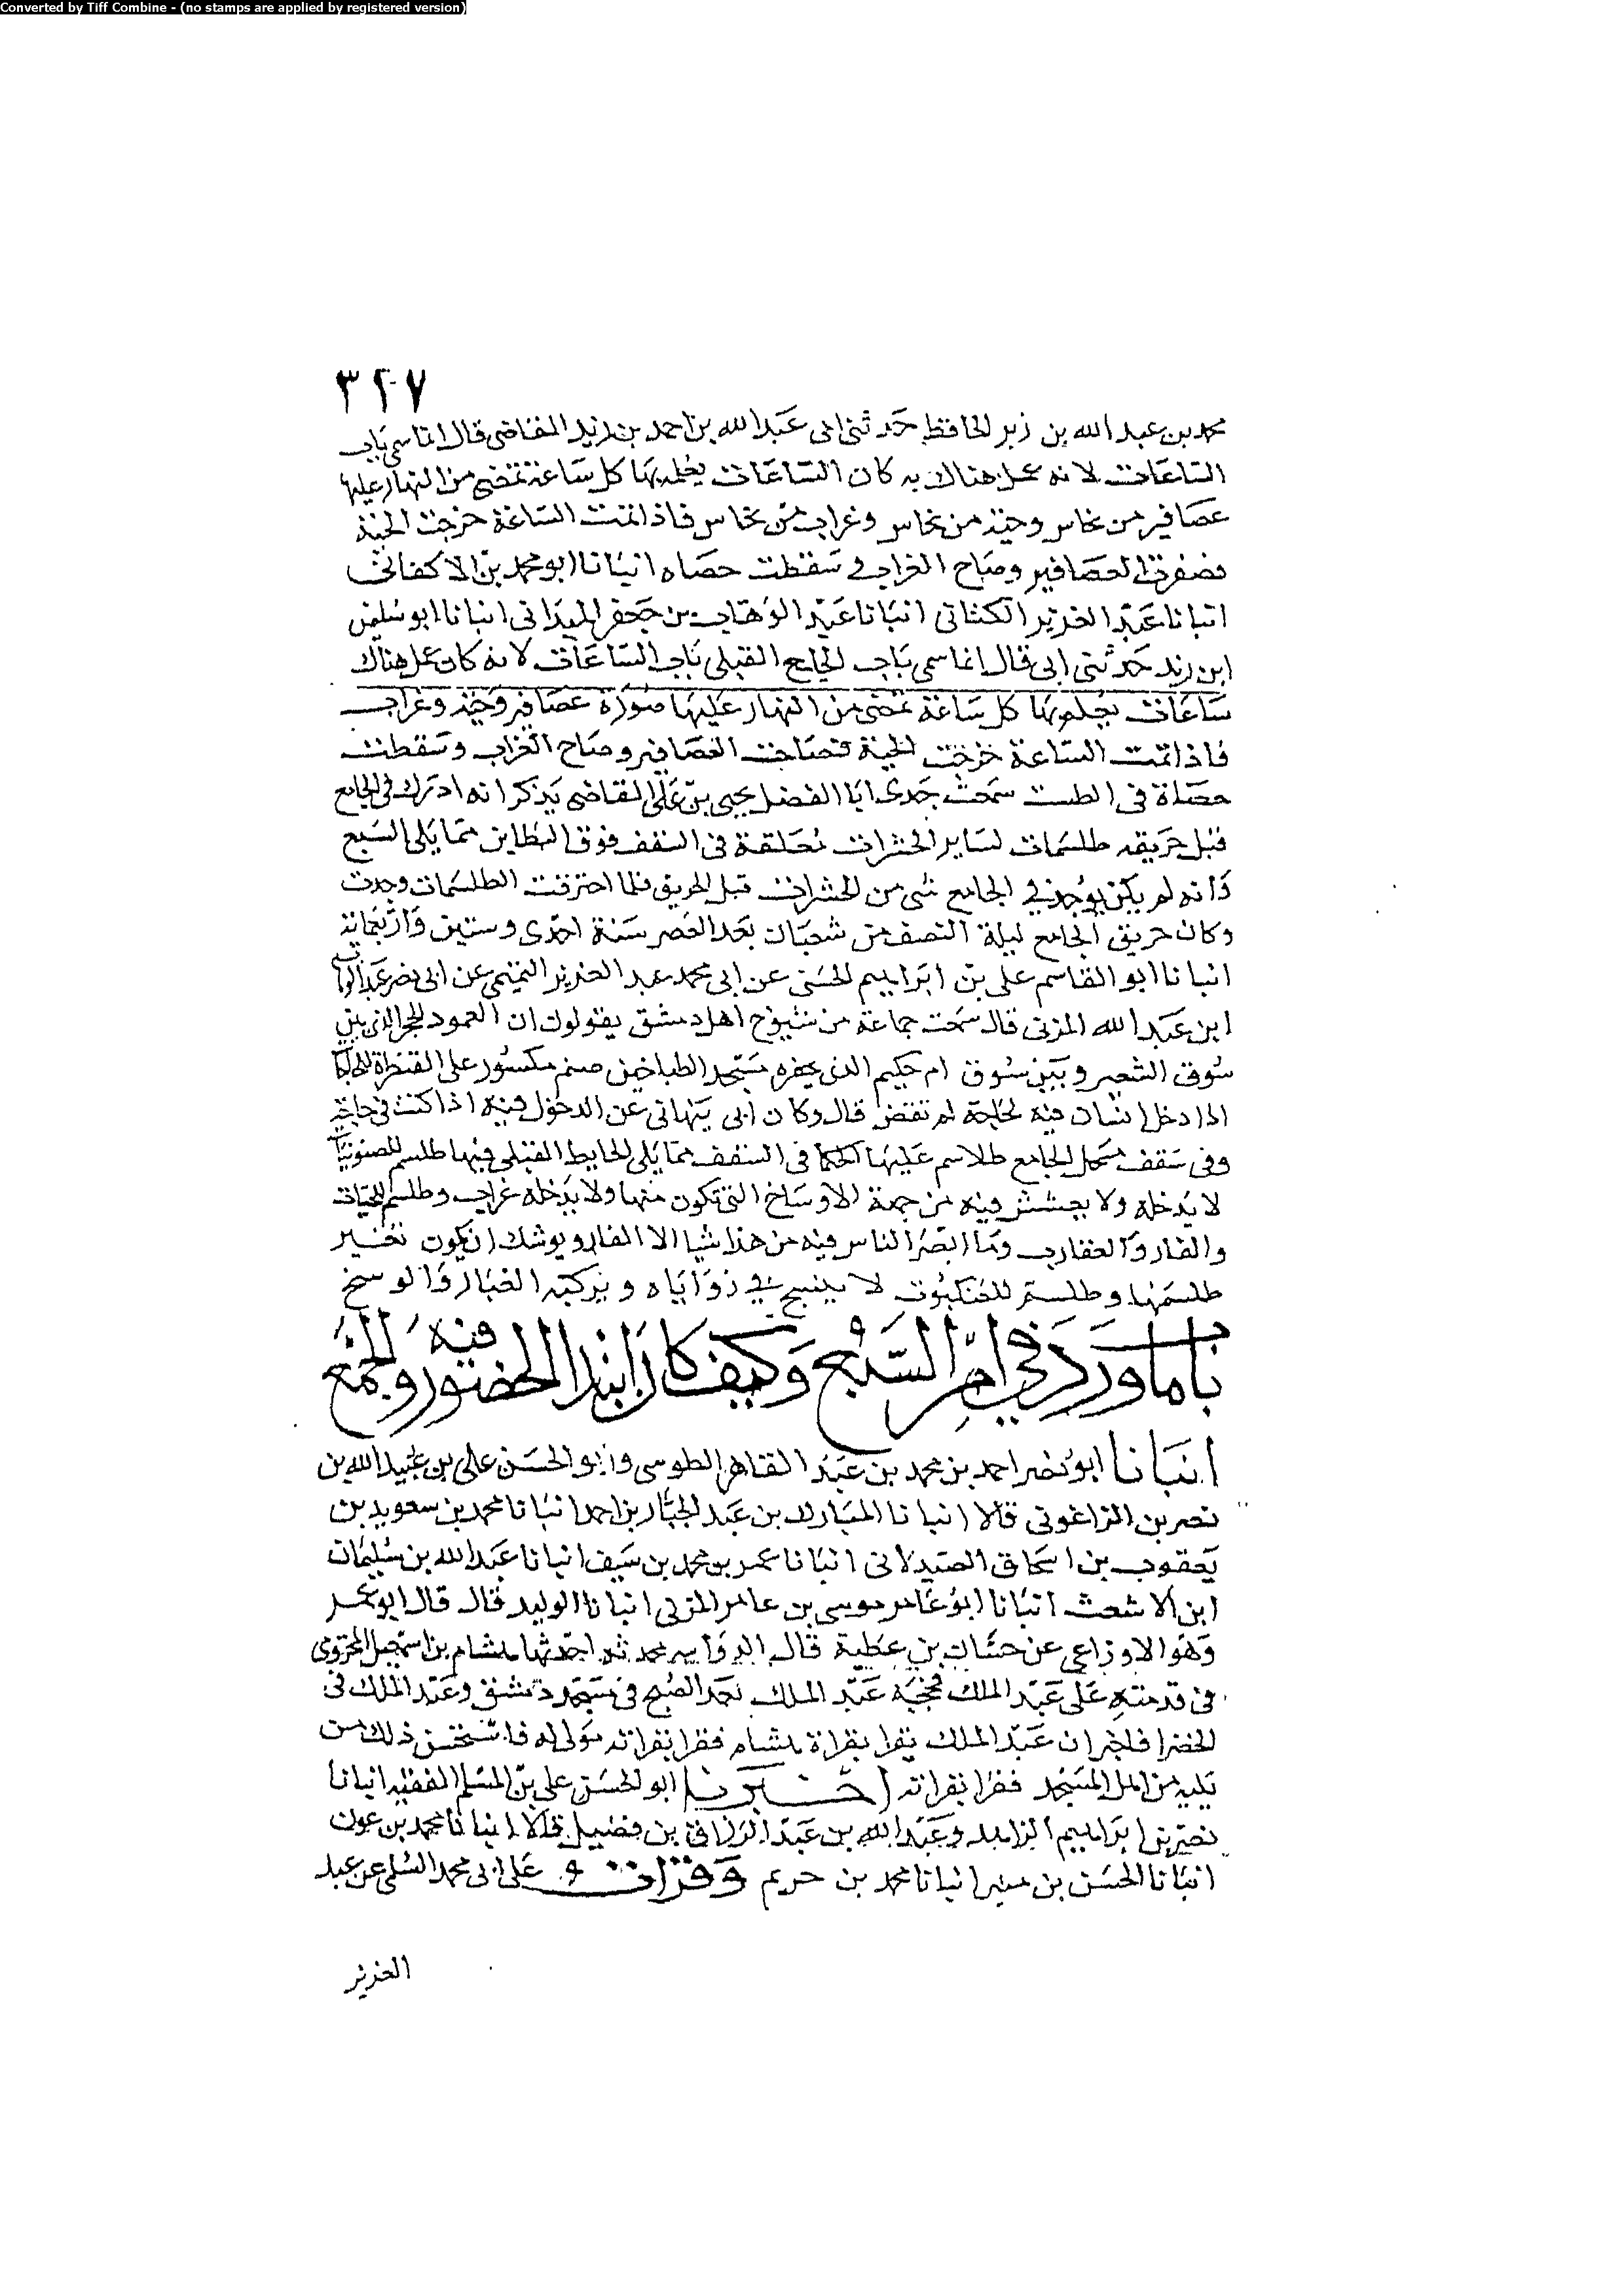 Converted by Tiff Combine - (no stamps are applied by registered version)
٣٢٧
محمد بن عبد الله بن زبر الحافظ حدثني ابي عبد الله بن احمد بن زبر القاضي قال انما سمي باب
الساعات لانه عمل هناك به كان الساعات يعلم بها كل ساعة تمضي من النهار عليها
عصافير من نحاس وحية من نحاس وغراب من نحاس فاذا تمت الساعة خرجت الحية
فصفرت العصافير وصاح الغراب و سقطت حصاه انبانا ابو محمد بن الاكفاني
انبانا عبد العزيز الكتاني انبانا عبد الوهاب بن جعفر الميداني انبانا ابو سليمن
ابن زبد حدثني ابي قال انما سمي باب الجامع القبلي باب الساعات لانه كان عمل هناك
ساعات يعلم بها كل ساعة تمضي من النهار عليها صورة عصافير وحية وغراب
فاذا تمت الساعة خرجت الحية فصاحت العصافير وصاح الغراب وسقطت
حصاة في الطست سمعت جدي ابا الفضل يحيى بن علي القاضي يذكر انه ادرك في الجامع
قبل حريقه طلسمات لساير الحشرات معلقة في السقف فوق البطاين مما يلي السبع
وانه لم يكن يوجد في الجامع شي من الحشرات قبل الحريق فلما احترقت الطلسمات وجدت
وكان حريق الجامع ليلة النصف من شعبان بعد العصر سنة احدى وستين واربعماية
انبانا ابو القاسم علي بن ابراهيم الحسني عن ابي محمد عبد العزيز التميمي عن ابي نصر عبد الوهاب
ابن عبد الله المزني قال سمعت جماعة من شيوخ اهل دمشق يقولون ان العمود الحجر الذي بين
سوق الشعير وبين سوق ام حكيم الذي بحضره مسجد الطباخين صنم مكسور على القنطرة
اذا دخل انسان فيه لحاجة لم تقض قال وكان ابي ينهاني عن الدخول فيه اذا كنت في حاجة
وفي سقف مسجد الجامع طلاسم عليها الحكما في السقف مما يلي الحايط القبلي فيها طلسم للصنونيات
لا يدخله ولا يعشش فيه من جهة الاوساخ التي تكون منها ولا يدخله غراب وطلسم للحيات
والفار والعقارب وما ابصر الناس فيه من هذا شيا الا الفار ويوشك ان يكون تغير
طلسمها وطلسم للعنكبوت لا ينسج في زواياه ويركبه الغبار والوسخ
باب ما ورد في امر السبع وكيف كان ابتدا الحضور فيه والجمع
انبانا ابو نصر احمد بن محمد بن عبد القاهر الطوسي وابو الحسن علي بن عبيد الله بن
نصر بن الزاغوني قالا انبانا المبارك بن عبد الجبار بن احمد انبانا محمد بن سعويد بن
يعقوب بن اسحاق الصيدلاني انبانا عمر بن محمد بن سيف انبانا عبد الله بن سليمان
ابن الاشعث انبانا ابو عامر موسى بن عامر المزني انبانا الوليد قال قال ابو عمر
وهو الاوزاعي عن حسان بن عطية قال الدراسه محدثه احدثها هشام بن اسمعيل المخزومي
في قدمته على عبد الملك فحجبه عبد الملك بعد الصبح في مسجد دمشق وعبد الملك في
الخضرا فاخبر ان عبد الملك يقرا بقراة هشام فقرا بقراته مولى له فاستحسن ذلك من
يليه من اهل المسجد فقرا بقراته اخبرنا ابو الحسن علي بن المسلم الفقيه انبانا
نصر بن ابراهيم الزاهد وعبد الله بن عبد الرزاق بن فضيل قالا انبانا محمد بن عون
انبانا الحسن بن منير انبانا محمد بن خريم وقرات على ابي محمد السلمي عن عبد
العزيز